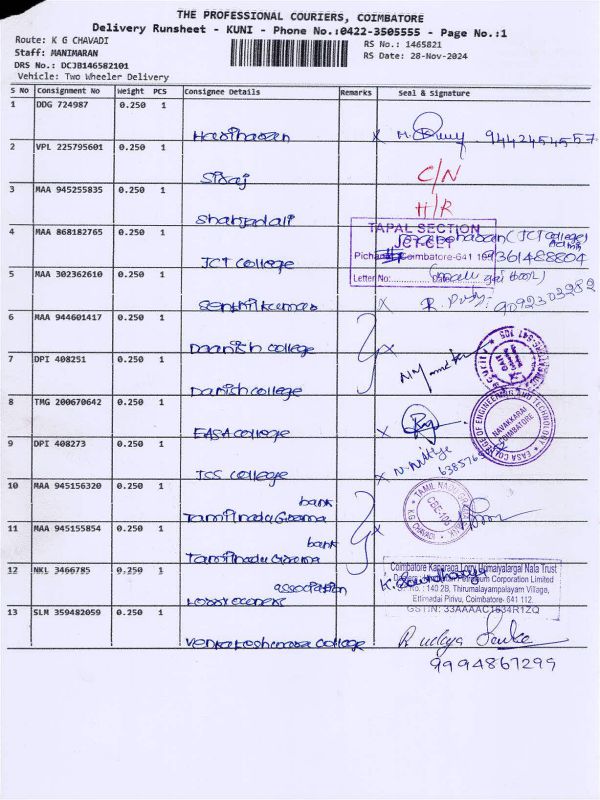 THE PROFESSIONAL COURIERS, COIMBATORE
Delivery Runsheet - KUNI - Phone No.:0422-3505555 - Page No.:1
Route: K G CHAVADI
RS No.: 1465821
Staff: MANIMARAN
RS Date: 28-Nov-2024
DRS No.: DCJB146582101
Vehicle: Two Wheeler Delivery
S No Consignment No Weight PCS Consignee Details Remarks Seal & Signature
1 DDG 724987 0.250 1
Hariharan x 9442454557
2 VPL 225795601 0.250 1
Siraj C/N
3 MAA 945255835 0.250 1
H/R
Shahjadali
TAPAL SECTION
4 MAA 868182765 0.250 1 (JCT College)
JCT-CET Admin
JCT College Coimbatore-641 105 9361488804
5 MAA 302362610 0.250 1 Letter No:
Senthilkumar x R. 9092302282
6 MAA 944601417 0.250 1
Daanish College x
7 DPI 408251 0.250 1
Danish College
8 TMG 200670642 0.250 1
EASA COLLEGE OF ENGINEERING AND TECHNOLOGY
NAVAKKARAI
COIMBATORE
EASA College x
9 DPI 408273 0.250 1
JCS College x N. Nithya
10 MAA 945156320 0.250 1
bank
Tamilnadu Grama
K.G. CHAVADI
11 MAA 945155854 0.250 1
bank
Tamilnadu Grama
12 NKL 3466785 0.250 1
Coimbatore Lorry Nala Trust
Petroleum Corporation Limited
association
Lorry owners
No.: 140 2B, Thirumalayampalayam Village,
Ettimadai Pirivu, Coimbatore- 641 112.
13 SLM 359482059 0.250 1
Venkateshwara College
9994867299